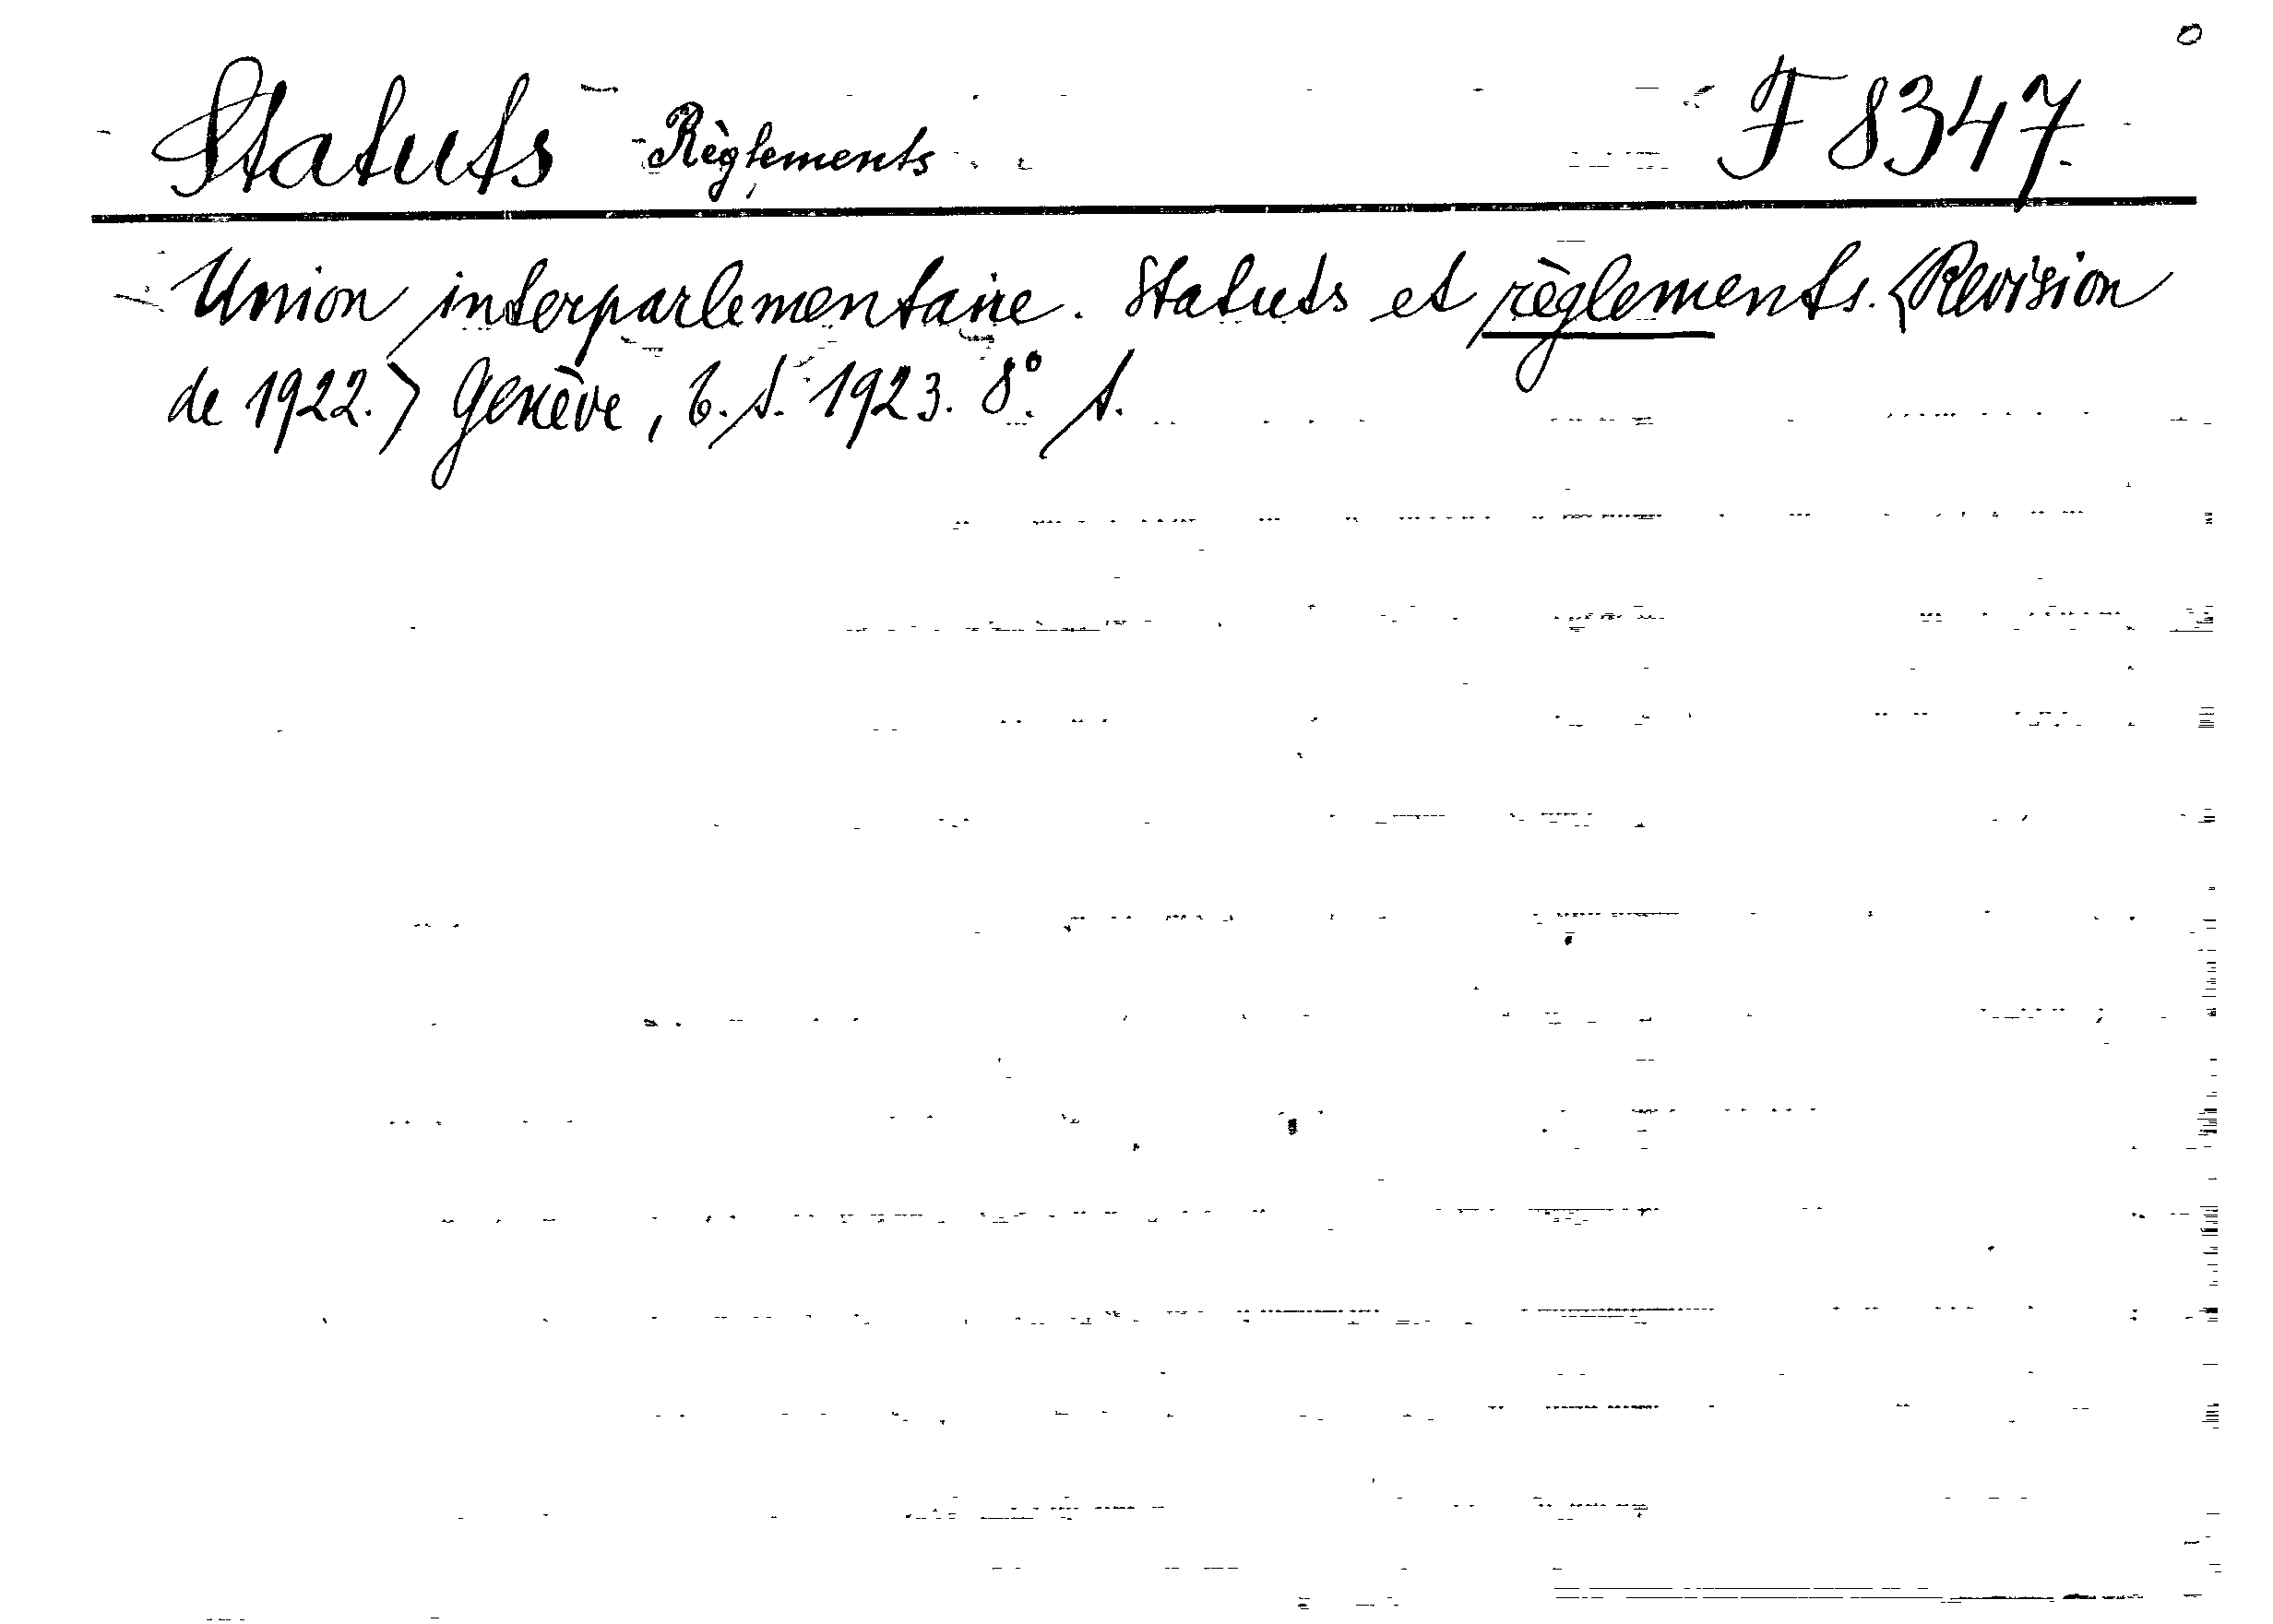 Statuts Règlements F 8347.
Union interparlementaire. Statuts et règlements. <Revision
de 1922.> Genève, b. s. 1923. 8°. s.